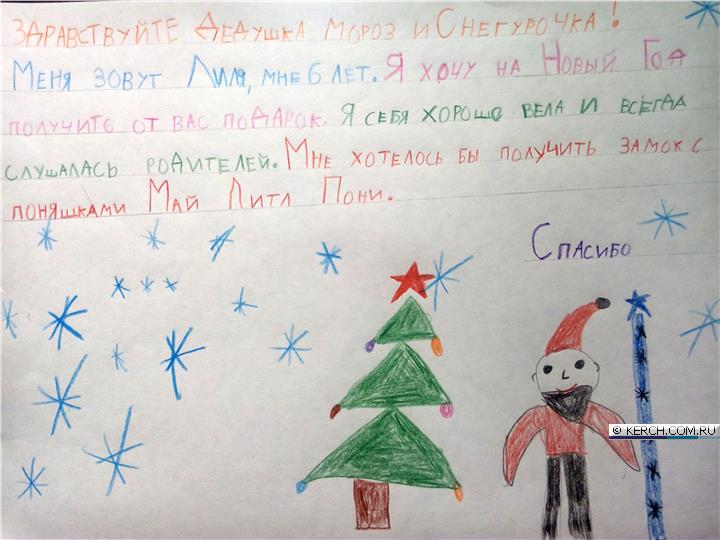 Здравствуйте Дедушка Мороз и Снегурочка!
Меня зовут Лиля, мне 6 лет. Я хочу на Новый Год
получить от вас подарок. Я себя хорошо вела и всегда
слушалась родителей. Мне хотелось бы получить замок с
поняшками Май Литл Пони.
Спасибо
© KERCH.COM.RU